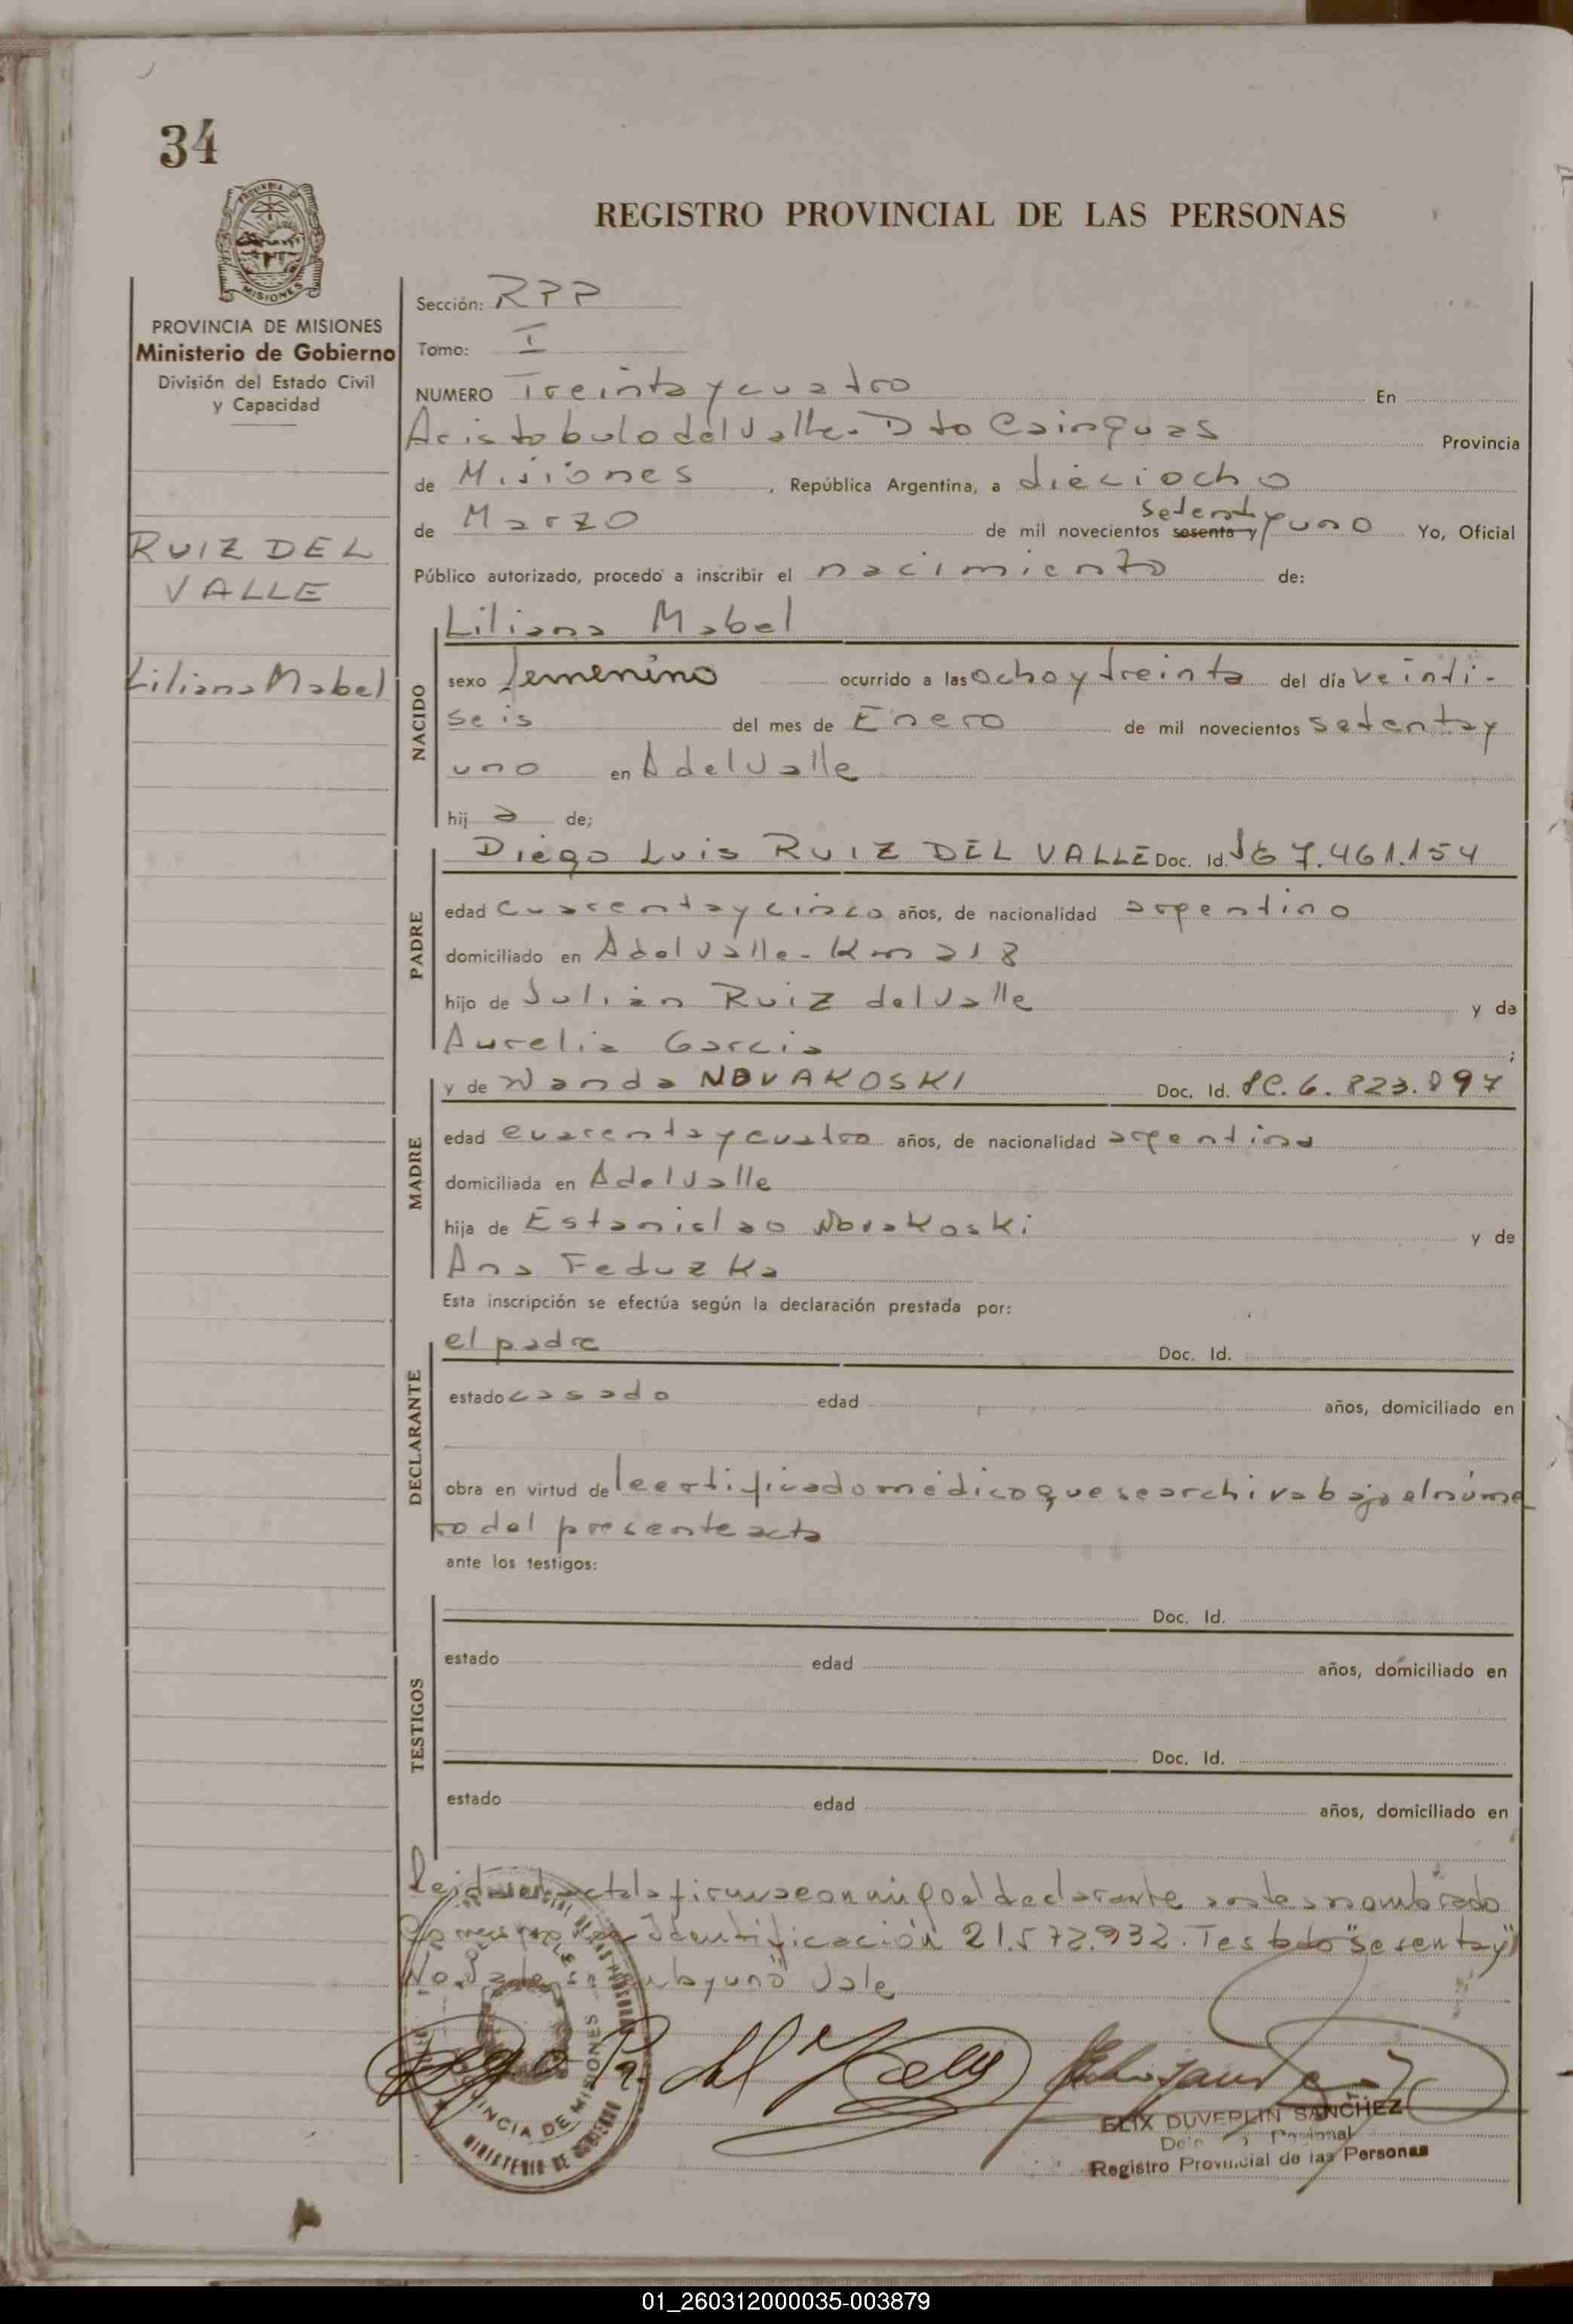 34
REGISTRO PROVINCIAL DE LAS PERSONAS
PROVINCIA DE MISIONES
MISIONES
PROVINCIA DE MISIONES
Ministerio de Gobierno
División del Estado Civil
y Capacidad
RUIZ DEL
VALLE
Liliana Mabel
Sección: RPP
Tomo: I
NUMERO Treinta y cuatro En
Aristobulo del Valle - Dto Cainguas Provincia
de Misiones, República Argentina, a dieciocho
de Marzo de mil novecientos sesenta y setenta y uno Yo, Oficial
Público autorizado, procedo a inscribir el nacimiento de:
Liliana Mabel
NACIDO
sexo femenino ocurrido a las ocho y treinta del día veinti-
seis del mes de Enero de mil novecientos setenta y
uno en A del Valle
hij a de;
PADRE
Diego Luis RUIZ DEL VALLE Doc. Id. 7.461.154
edad cuarenta y cinco años, de nacionalidad argentino
domiciliado en A del Valle - Km 218
hijo de Julián Ruiz del Valle y de
Aurelia Garcia ;
MADRE
y de Wanda NOVAKOSKI Doc. Id. 6.823.897
edad cuarenta y cuatro años, de nacionalidad argentina
domiciliada en A del Valle
hija de Estanislao Novakoski y de
Ana Feduzka
Esta inscripción se efectúa según la declaración prestada por:
DECLARANTE
el padre Doc. Id.
estado casado edad años, domiciliado en
obra en virtud del certificado médico que se archiva bajo el núme
ro del presente acta
ante los testigos:
TESTIGOS
Doc. Id.
estado edad años, domiciliado en
Doc. Id.
estado edad años, domiciliado en
Leida el acta la firma conmigo el declarante antes nombrado
Identificación 21.572.932. Testado "sesenta y"
No. y uno" Vale
PROVINCIA DE MISIONES
MINISTERIO DE GOBIERNO
ELIX DUVERLIN SANCHEZ
Registro Provincial de las Personas
01_260312000035-003879